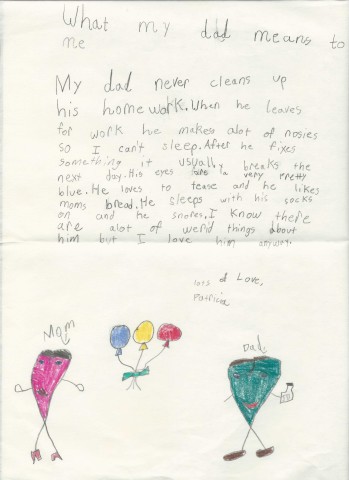 What my dad means to
me
My dad never cleans up
his homework. When he leaves
for work he makes alot of nosies
so I can't sleep. After he fixes
something it usually breaks the
next day. His eyes are a very pretty
blue. He loves to tease and he likes
moms bread. He sleeps with his socks
on and he snores. I know there
are alot of werid things about
him but I love him anyway.
lots of Love,
Patricia
Mom
Dad